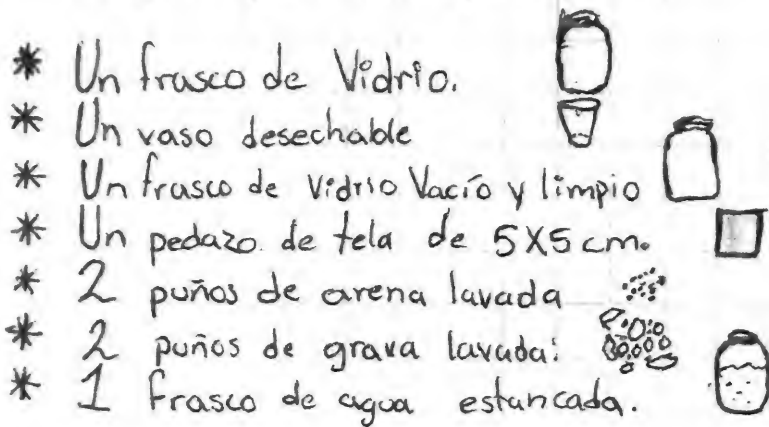 * Un frasco de Vidrio.
* Un vaso desechable
* Un frasco de Vidrio Vacío y limpio
* Un pedazo de tela de 5X5 cm.
* 2 puños de arena lavada
* 2 puños de grava lavada:
* 1 frasco de agua estancada.